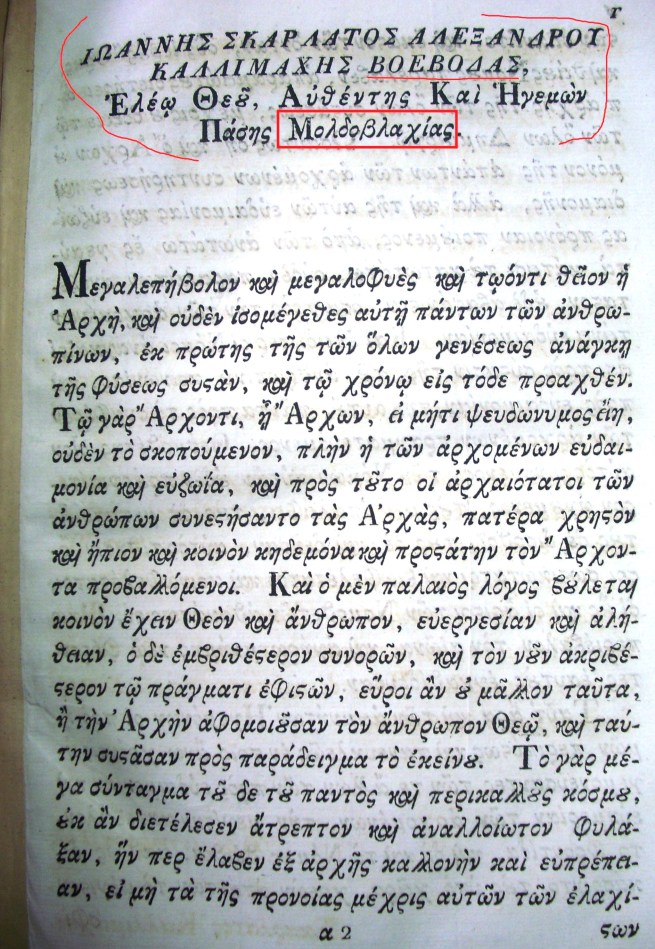 γ
ΙΩΑΝΝΗΣ ΣΚΑΡΛΑΤΟΣ ΑΛΕΞΑΝΔΡΟΥ
ΚΑΛΛΙΜΑΧΗΣ ΒΟΕΒΟΔΑΣ,
Ἐλέῳ Θεȣ͂, Αὐθέντης Καὶ Ἡγεμὼν
Πάσης Μολδοβλαχίας.
Μεγαλεπήβολον καὶ μεγαλοφυὲς καὶ τῳόντι θεῖον ἡ
Ἀρχὴ, καὶ οὐδὲν ἰσομέγεθες αὐτῇ πάντων τῶν ἀνθρω-
πίνων, ἐκ πρώτης τῆς τῶν ὅλων γενέσεως ἀνάγκῃ
τῆς φύσεως συϛὰν, καὶ τῷ χρόνῳ εἰς τόδε προαχθέν.
Τῷ γὰρ Ἄρχοντι, ᾗ Ἄρχων, εἰ μήτι ψευδώνυμος εἴη,
οὐδὲν τὸ σκοπούμενον, πλὴν ἡ τῶν ἀρχομένων εὐδαι-
μονία καὶ εὐζωΐα, καὶ πρὸς τȣ͂το οἱ ἀρχαιότατοι τῶν
ἀνθρώπων συνεϛήσαντο τὰς Ἀρχὰς, πατέρα χρηϛὸν
καὶ ἤπιον καὶ κοινὸν κηδεμόνα καὶ προϛάτην τὸν Ἄρχον-
τα προβαλλόμενοι. Καὶ ὁ μὲν παλαιὸς λόγος βȣ́λεται
κοινὸν ἔχειν Θεὸν καὶ ἄνθρωπον, εὐεργεσίαν καὶ ἀλή-
θειαν, ὁ δὲ ἐμβριθέϛερον συνορῶν, καὶ τὸν νȣ͂ν ἀκριβέ-
ϛερον τῷ πράγματι ἐφιϛῶν, εὕροι ἂν ȣ̓ μᾶλλον ταῦτα,
ἢ τὴν Ἀρχὴν ἀφομοιȣ͂σαν τὸν ἄνθρωπον Θεῷ, καὶ ταύ-
την συϛᾶσαν πρὸς παράδειγμα τὸ ἐκείνȣ. Τὸ γὰρ μέ-
γα σύνταγμα τȣ͂ δε τȣ͂ παντὸς καὶ περικαλλȣ͂ς κόσμȣ,
ȣ̓κ ἂν διετέλεσεν ἄτρεπτον καὶ ἀναλλοίωτον φυλά-
ξαν, ἥν περ ἔλαβεν ἐξ ἀρχῆς καλλονὴν καὶ εὐπρέπει-
αν, εἰ μὴ τὰ τῆς προνοίας μέχρις αὐτῶν τῶν ἐλαχί-
α 2
ϛων